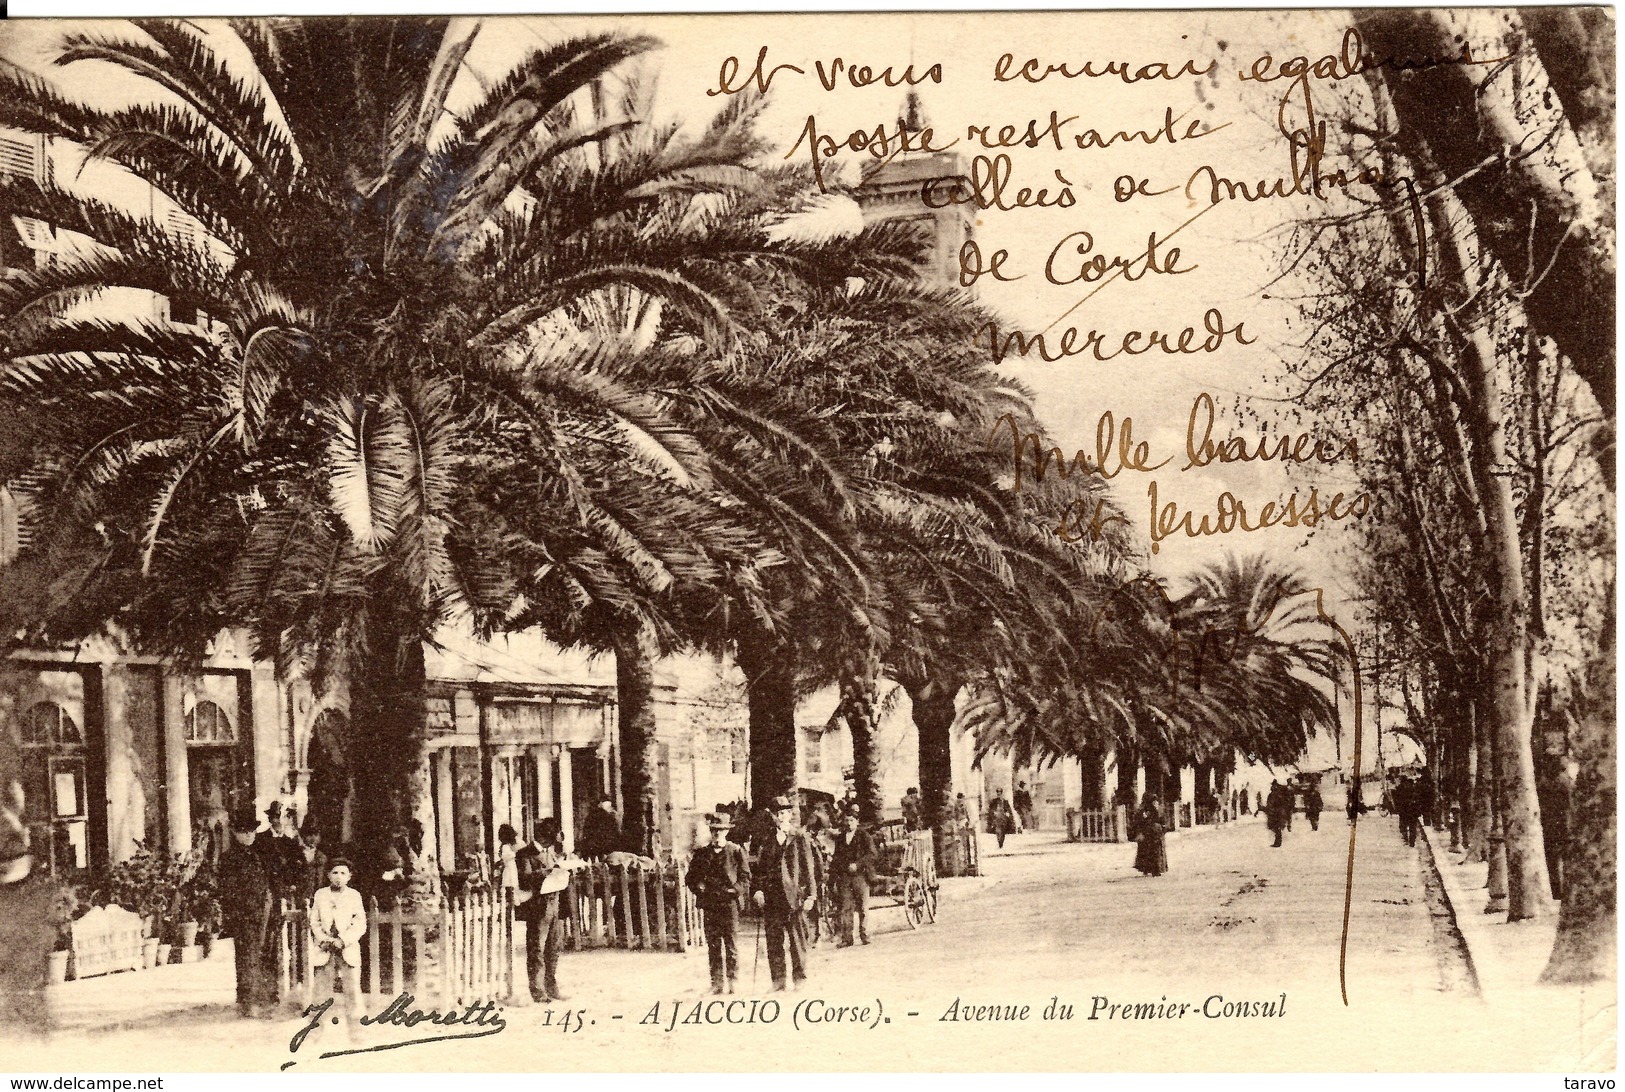 et vous ecrirai egalemt
poste restante
de
de Corte
mercredi
Mille baisers
et tendresses
J. Moretti 145. - AJACCIO (Corse). - Avenue du Premier-Consul
www.delcampe.net taravo